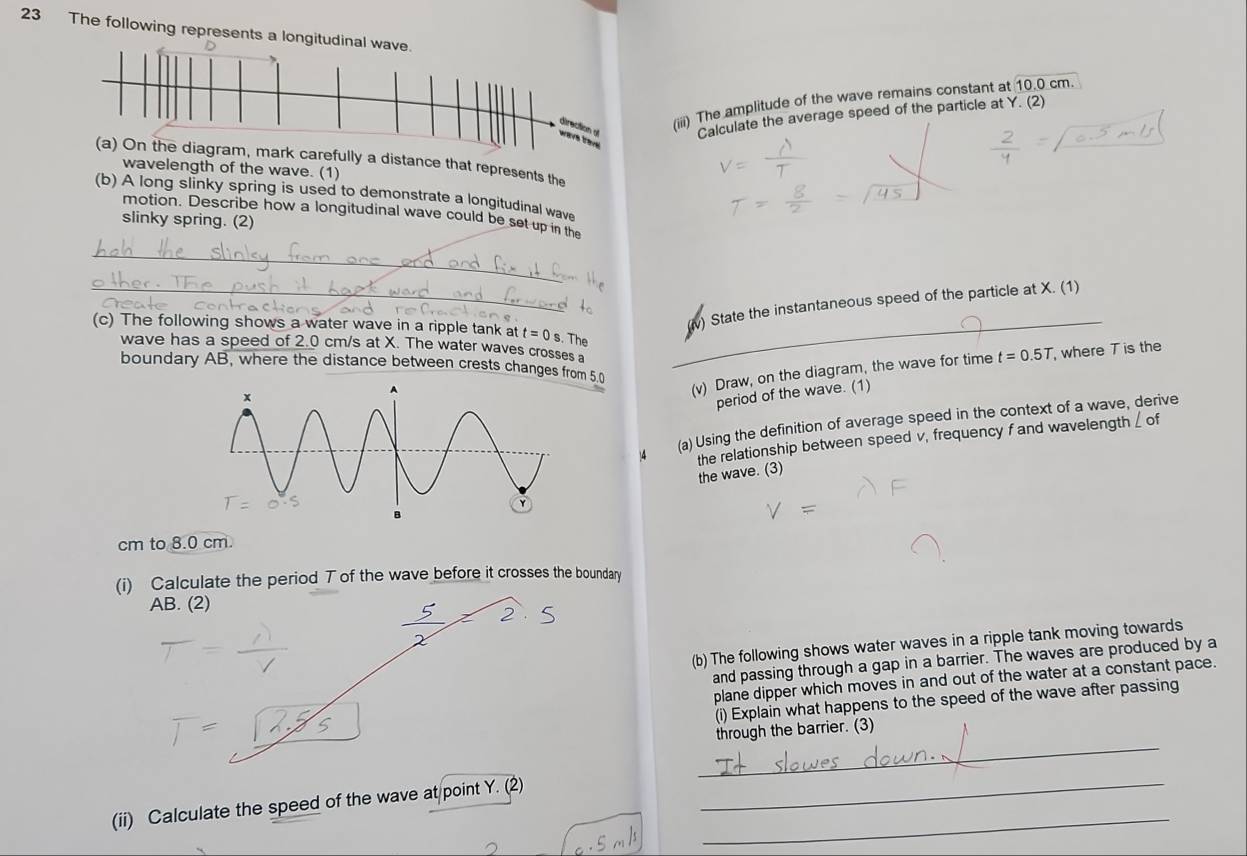 23 The following represents a longitudinal wave.
D
direction of
wave travel
(a) On the diagram, mark carefully a distance that represents the
wavelength of the wave. (1)
(b) A long slinky spring is used to demonstrate a longitudinal wave
motion. Describe how a longitudinal wave could be set up in the
slinky spring. (2)
the slinky from one end and fix it from the
other. push it ward and forword to
create contractions and refractions.
(c) The following shows a water wave in a ripple tank at t = 0 s. The
wave has a speed of 2.0 cm/s at X. The water waves crosses a
boundary AB, where the distance between crests changes from 5.0
A
X
Y
B
T = 0.5
cm to 8.0 cm.
(i) Calculate the period T of the wave before it crosses the boundary
AB. (2)
T = λ/v
5/2 = 2.5
T = 2.5 s
(ii) Calculate the speed of the wave at point Y. (2)
0.5 m/s
(iii) The amplitude of the wave remains constant at 10.0 cm.
Calculate the average speed of the particle at Y. (2)
V = λ/T
T = 8/2 = 4s
2/4 = 0.5 m/s
(iv) State the instantaneous speed of the particle at X. (1)
(v) Draw, on the diagram, the wave for time t = 0.5T, where T is the
period of the wave. (1)
(a) Using the definition of average speed in the context of a wave, derive
the relationship between speed v, frequency f and wavelength ∠ of
the wave. (3)
V = λF
(b) The following shows water waves in a ripple tank moving towards
and passing through a gap in a barrier. The waves are produced by a
plane dipper which moves in and out of the water at a constant pace.
(i) Explain what happens to the speed of the wave after passing
through the barrier. (3)
It slowes down.